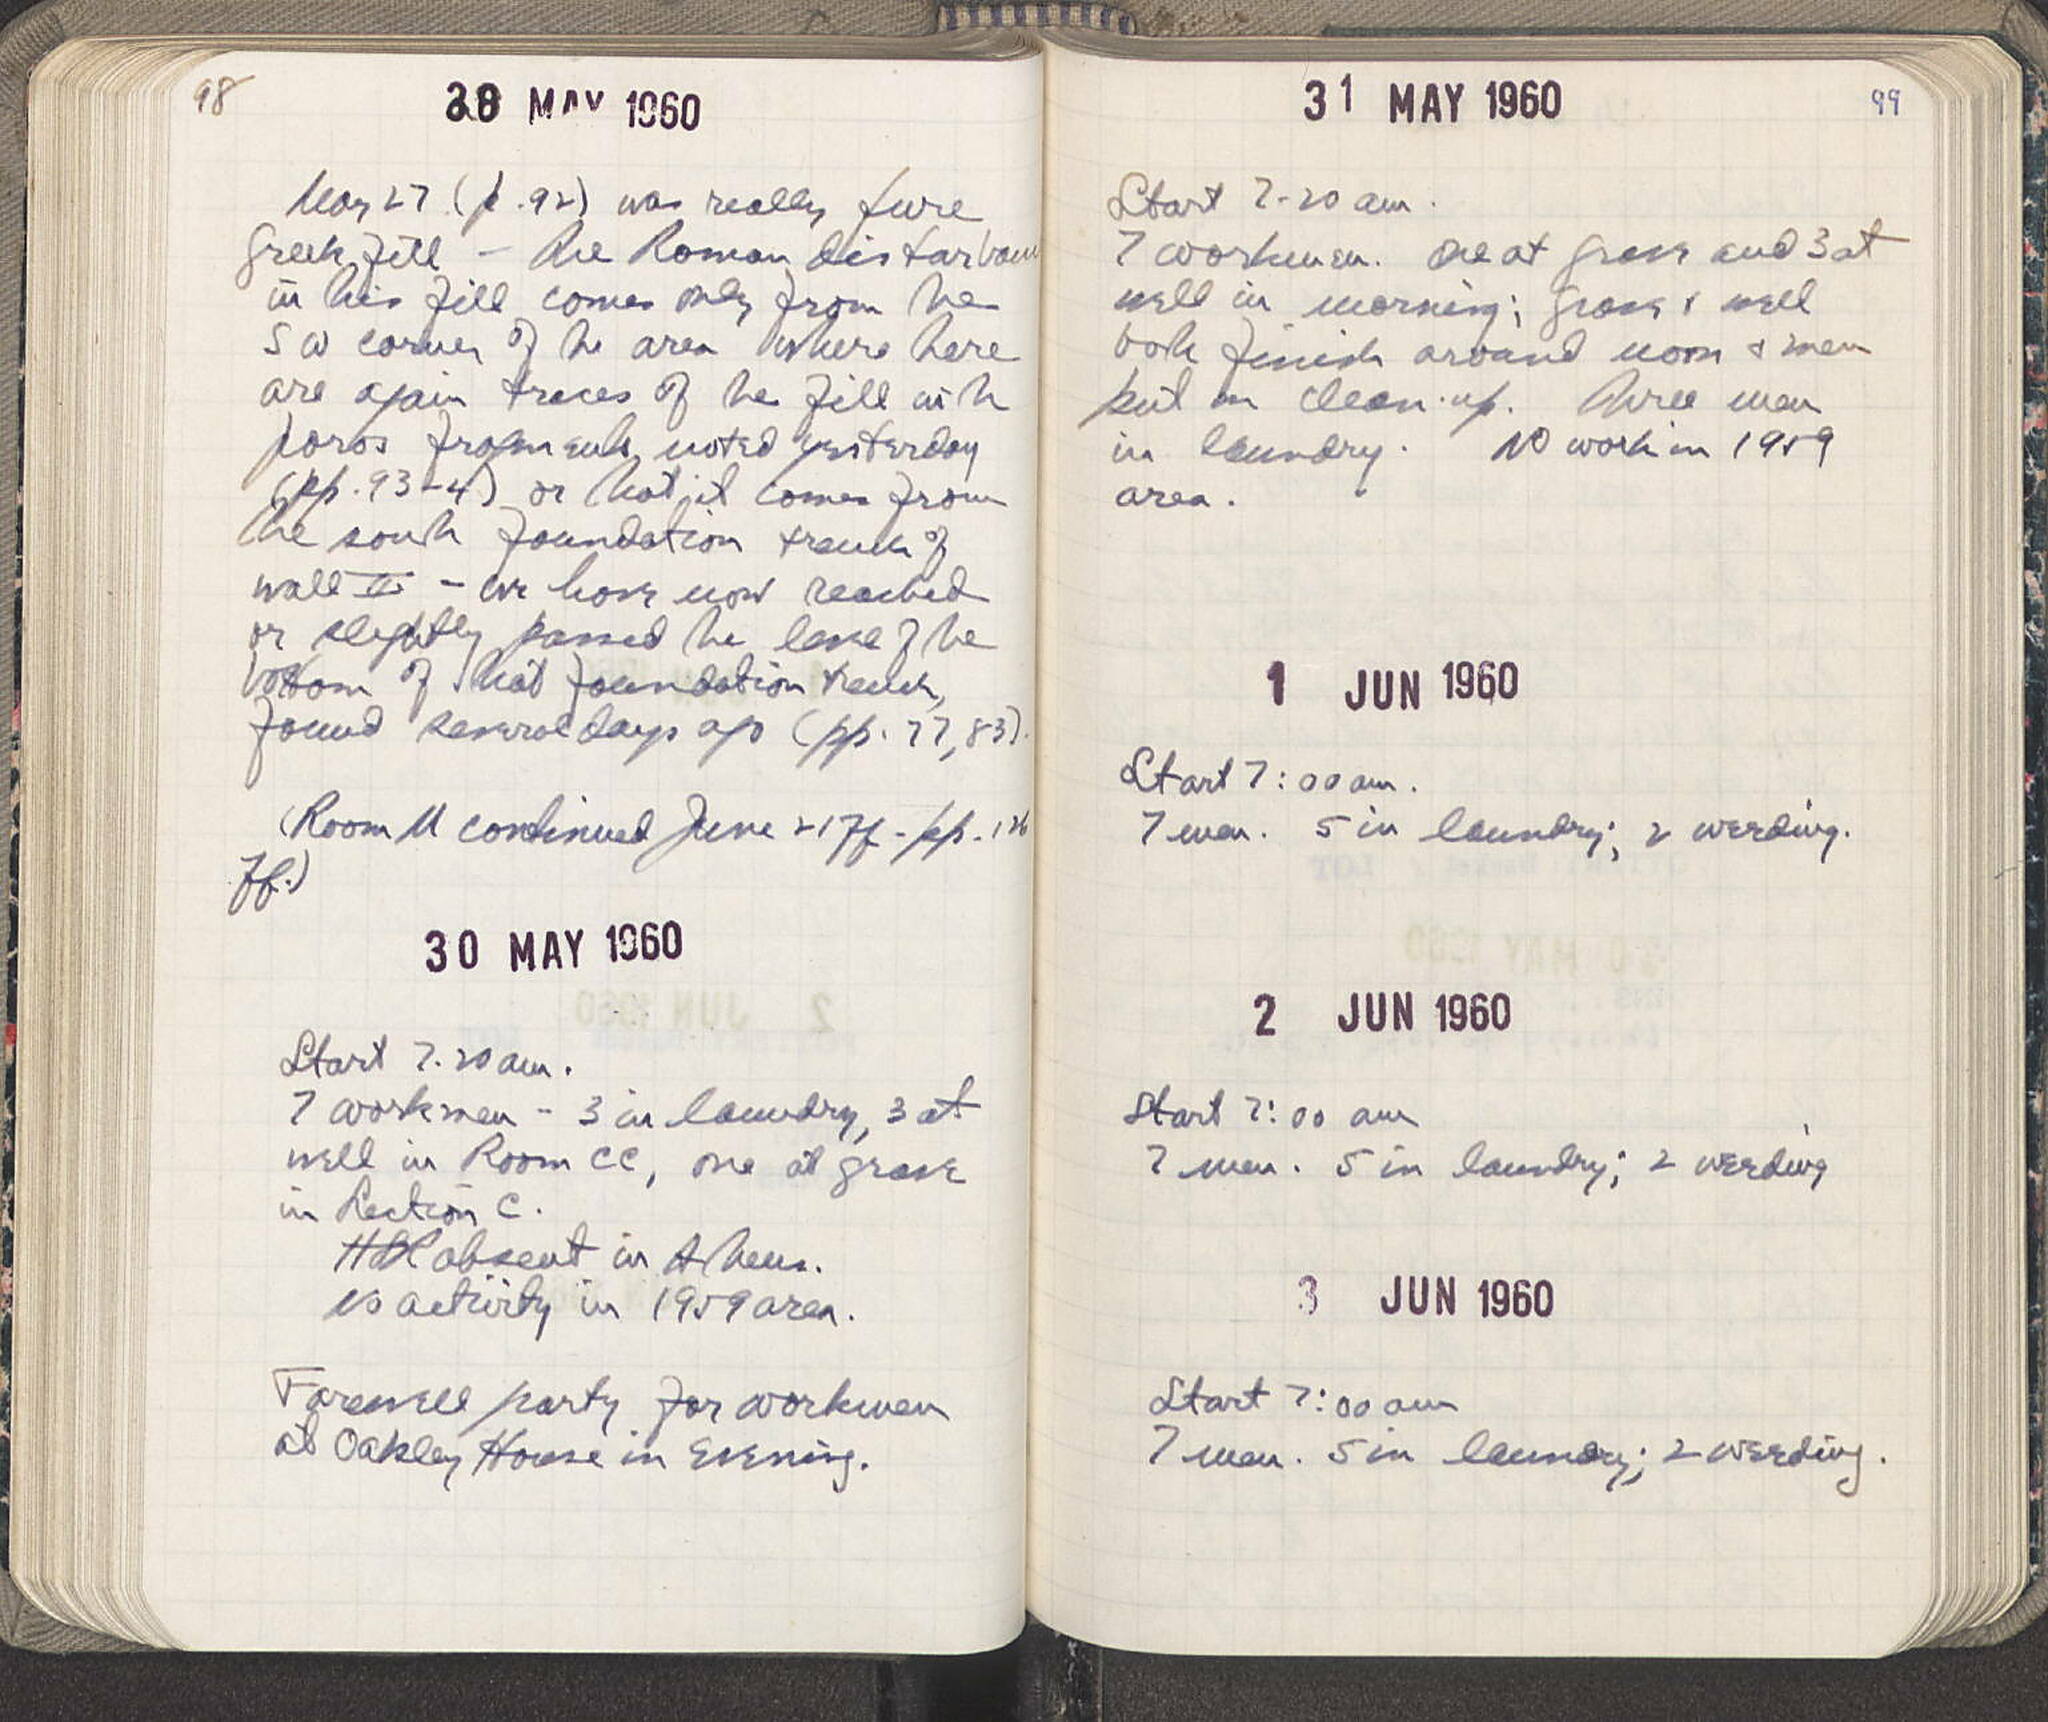 98
28 MAY 1960
May 27 (p. 92) was really pure
Greek fill – the Roman disturbance
in this fill comes only from the
SW corner of the area where there
are again traces of the fill with
poros fragments noted yesterday
(pp. 93-4) or that it comes from
the south foundation trench of
wall II – we have now reached
or slightly passed the level of the
bottom of that foundation trench,
found several days ago (pp. 77, 83).
(Room M continued June 21 ff - pp. 126
ff.)
30 MAY 1960
Start 7.20 am.
7 workmen - 3 in laundry, 3 at
well in Room CC, one at grave
in Section C.
absent in Athens.
No activity in 1959 area.
Farewell party for workmen
at Oakley House in Evening.
31 MAY 1960
99
Start 7-20 am.
7 workmen. One at grave and 3 at
well in morning; grave & well
both finish around noon & men
put on clean-up. Three men
in laundry. No work in 1959
area.
1 JUN 1960
Start 7:00 am.
7 men. 5 in laundry; 2 weeding.
2 JUN 1960
Start 7:00 am
7 men. 5 in laundry; 2 weeding
3 JUN 1960
Start 7:00 am
7 men. 5 in laundry; 2 weeding.